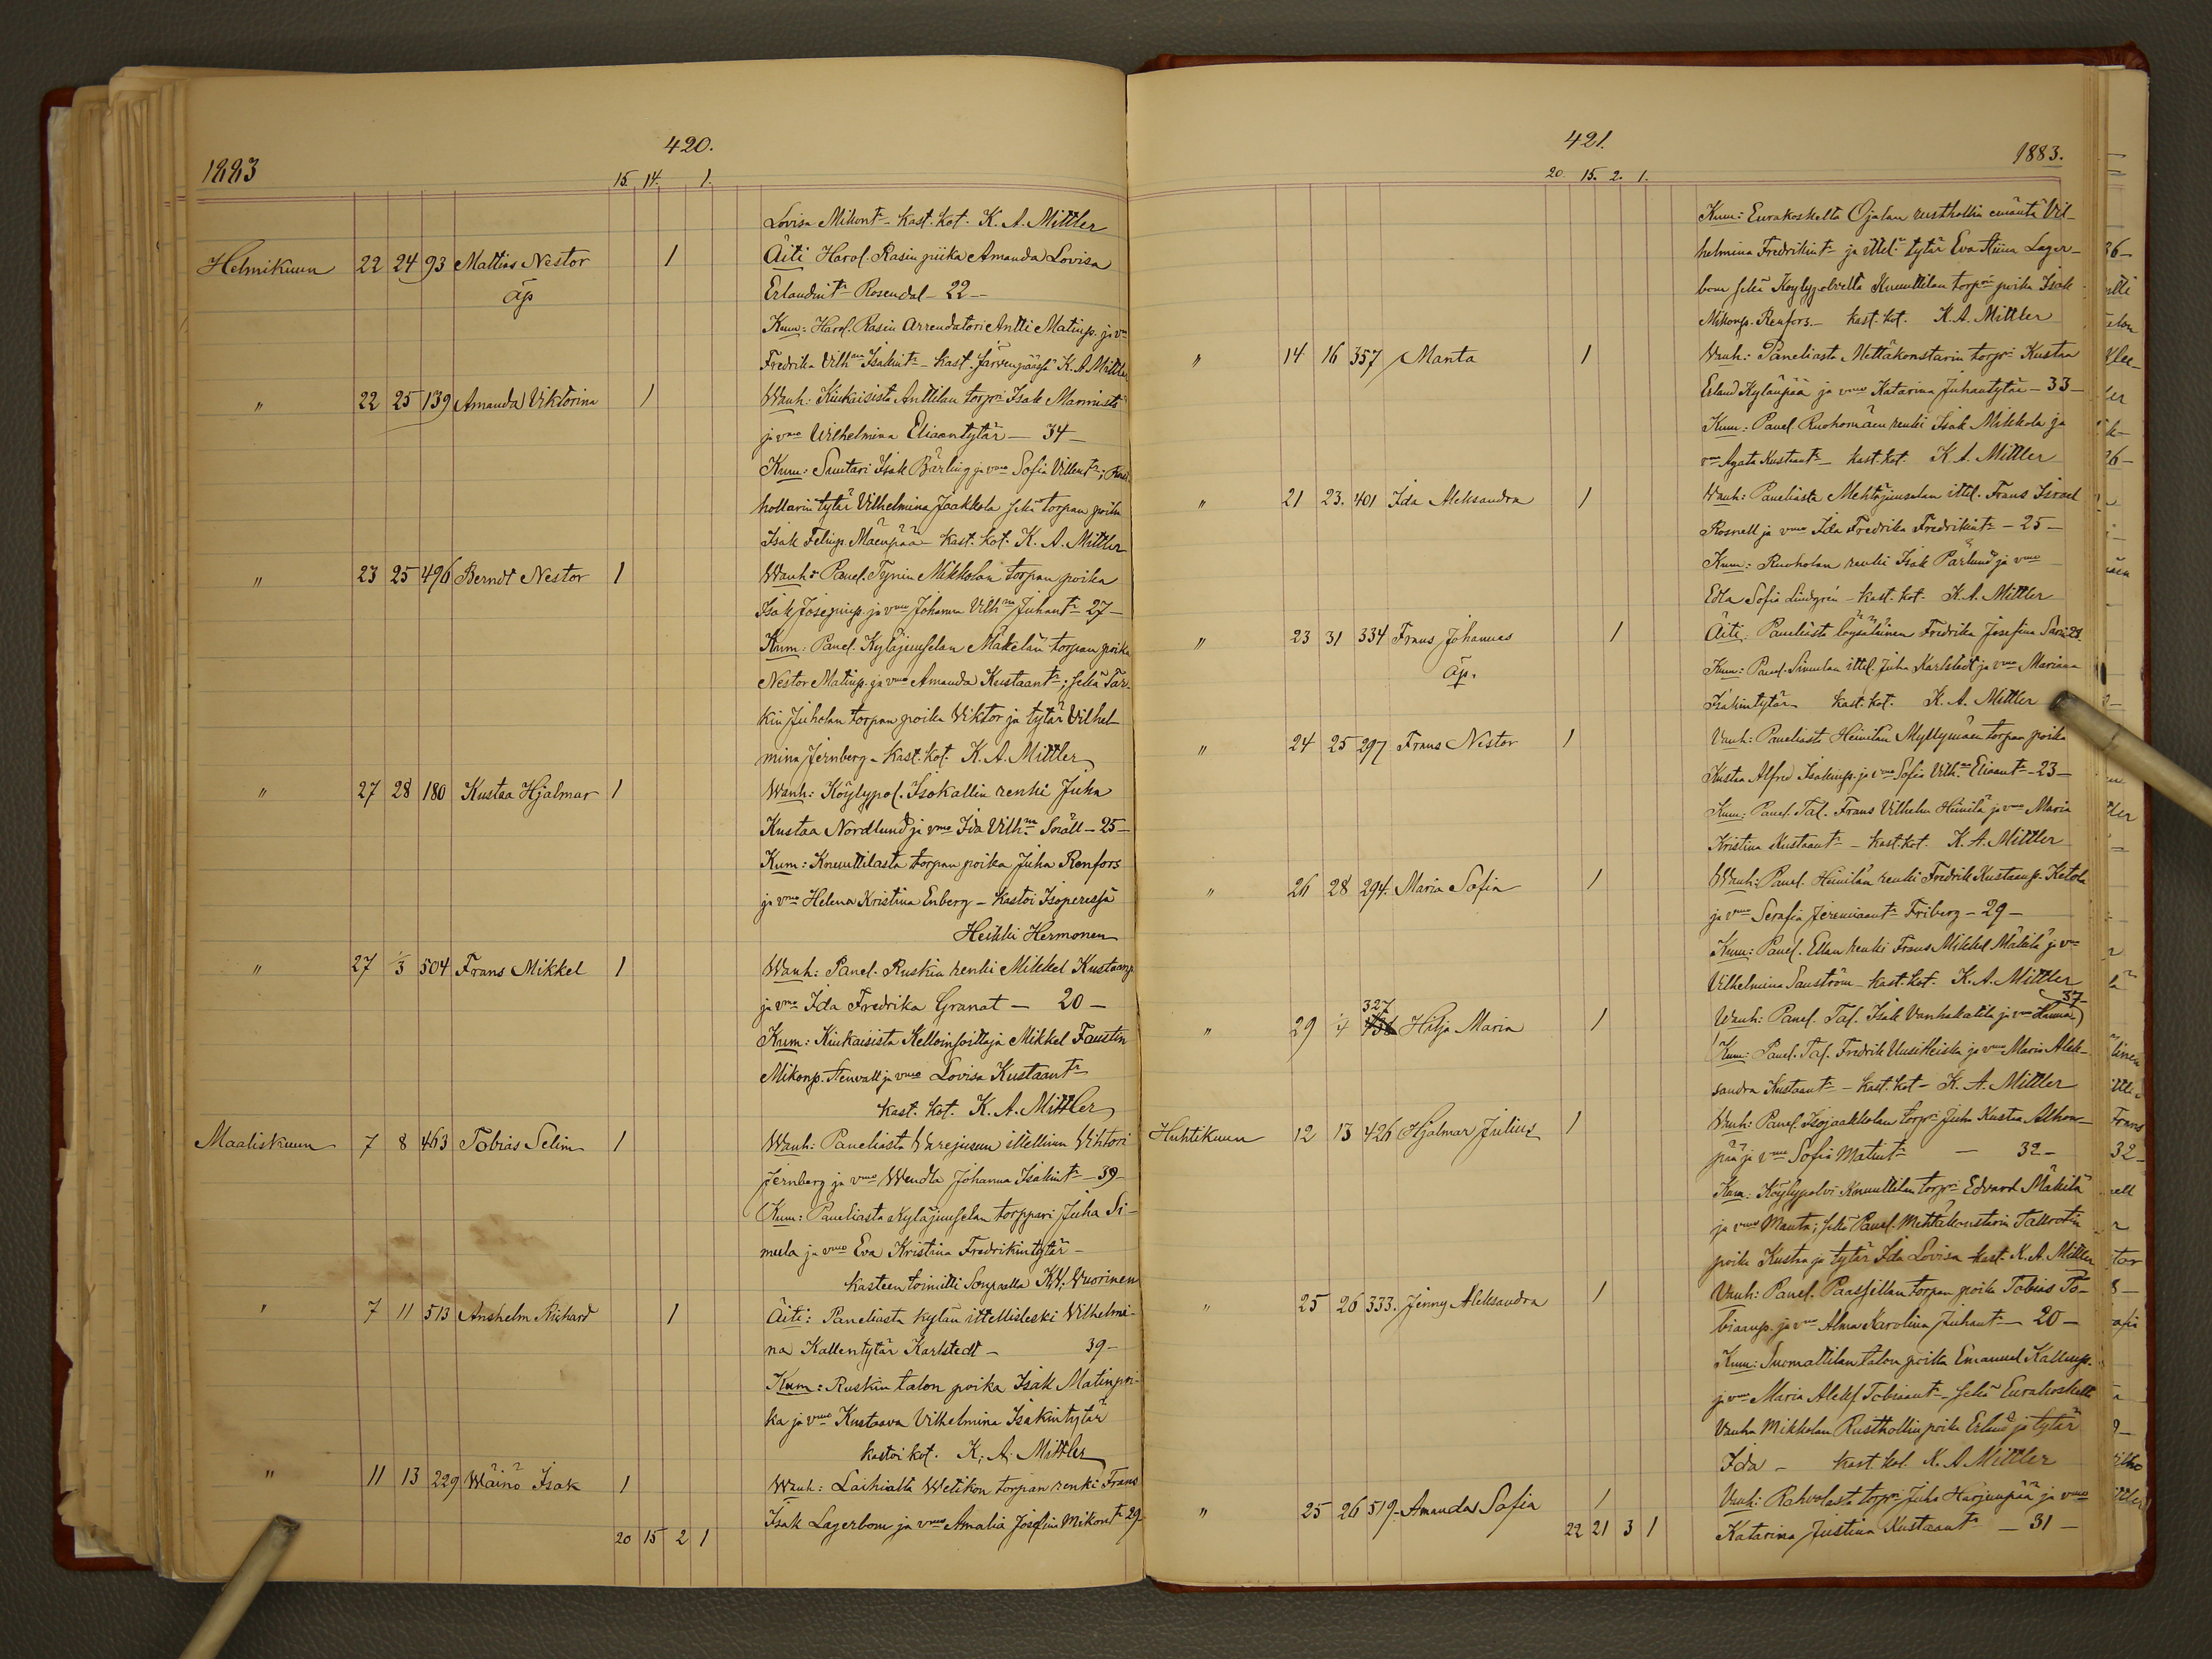 420.
1883
15. 14. 1.
Lovisa Mikont. - Kast. kot. K. A. Mittler
Helmikuun 22 24 93 Mattias Nestor 1 Äiti Harol. Rasin piika Amanda Lovisa
äp Erlandint. Rosendal - 22 -
Kum: Harol. Rasin Arrendatori Antti Matinp. ja vmo
Fredrika Vilhna Isakint. - Kast. Järvenpäässä K. A. Mittler
" 22 25 139 Amanda Viktorina 1 Wanh: Kiukaisista Anttilan torpri Isak Marmisto
ja vmo Wilhelmina Eliaantytär - 34 -
Kum: Suutari Isak Bärling ja vmo Sofia Villent.;
hollarin tytär Vilhelmina Jaakkola sekä torpan poika
Isak Felinp. Mäenpää - Kast. kot. K. A. Mittler
" 23 25 496 Berndt Nestor 1 Wanh: Panel. Tynin Mikkolan torpan poika
Isak Josepinp. ja vmo Johanna Vilhna Juhant. 27 -
Kum: Panel. Kyläjuuselan Mäkelän torpan poika
Nestor Matinp. ja vmo Amanda Kustaant.; sekä Tar-
kin Juholan torpan poika Viktor ja tytär Vilhel-
mina Jernberg - Kast. kot. K. A. Mittler
" 27 28 180 Kustaa Hjalmar 1 Wanh: Köylypol. Isokallin renki Juha
Kustaa Nordlund ja vmo Ida Vilhna Snäll - 25 -
Kum: Knuuttilasta torpan poika Juha Renfors
ja vmo Helena Kristina Enberg - Kastoi Isoperessä
Heikki Hermonen
" 27 1/3 504 Frans Mikkel 1 Wanh: Panel. Ruskin renki Mikkel Kustaanp.
ja vmo Ida Fredrika Granat - 20 -
Kum: Kiukaisista Kelloinsoittaja Mikkel Faustin
Mikonp. Stenvall ja vmo Lovisa Kustaant.
Kast. kot. K. A. Mittler
Maaliskuun 7 8 463 Tobias Selim 1 Wanh: Paneliasta Warejusun ittellinen Wihtori
Jernberg ja vmo Wendla Johanna Isakint. - 39 -
Kum: Paneliasta Kyläjuuselan torppari Juha Si-
mula ja vmo Eva Kristina Fredrikintytär -
Kasteen toimitti Sorpalla K. V. Vuorinen
" 7 11 513 Anshelm Rikhard 1 Äiti: Paneliasta kylän ittellisleski Wilhelmi-
na Kallentytär Karlstedt - 39 -
Kum: Ruskin talon poika Isak Matinpoi-
ka ja vmo Kustaava Vilhelmina Isakintytär
Kastoi kot. K. A. Mittler
" 11 13 229 Wäinö Isak 1 Wanh: Laihialta Wetikon torpan renki Frans
Isak Lagerbom ja vmo Amalia Josefina Mikont. 29 -
20 15 2 1
421.
1883.
20. 15. 2. 1.
Kum: Eurakoskelta Ojalan rusthollin emäntä Vil-
helmina Fredrikint. ja ittel. tytär Eva Stiina Lager-
bom sekä Köylypolvelta Knuuttilan torpan poika Isak
Mikonp. Renfors. - Kast. kot. K. A. Mittler
" 14 16 357 Manta 1 Wanh: Paneliasta Mettäkonstarin torpri Kustaa
Erland Kylänpää ja vmo Katarina Juhantytär - 33 -
Kum: Panel. Ruohomäen renki Isak Mikkola ja
vmo Agata Kustaant. - Kast. kot. K. A. Mittler
" 21 23. 401 Ida Aleksandra 1 Wanh: Paneliasta Mehtäjuuselan ittel. Frans Israel
Rosnell ja vmo Ida Fredrika Fredrikint. - 25 -
Kum: Ruoholan renki Isak Pärlund ja vmo
Edla Sofia Lindgrén - Kast. kot. K. A. Mittler
" 23 31 334 Frans Johannes 1 Äiti: Paneliasta löysäläinen Fredrika Josefina Sarin 28.
äp. Kum: Panel. Simulan ittel. Juha Karlstedt ja vmo Mariana
Isakintytär Kast. kot. K. A. Mittler
" 24 25 297 Frans Nestor 1 Vanh: Paneliasta Heinilän Myllymäen torpan poika
Kustaa Alfred Isakinp. ja vmo Sofia Vilhna Eliaant. - 23 -
Kum: Panel. Tal. Frans Vilhelm Heinilä ja vmo Maria
Kristina Kustaant. - Kast. kot. K. A. Mittler
" 26 28 294. Maria Sofia 1 Wanh: Panel. Heinilän renki Fredrik Kustaanp. Ketola
ja vmo Serafia Jeremiaant. Friberg - 29 -
Kum: Panel. Ellan renki Frans Mikkel Mäkilä ja vmo
Vilhelmina Sanström - Kast. kot. K. A. Mittler
327 37 -
" 29 1/4 Hilja Maria 1 Wanh: Panel. Tal. Isak Vanhakatila ja vmo Hanna
Kum: Panel. Tal. Fredrik Uusikleiska ja vmo Maria Alek-
sandra Kustaant. - Kast. kot - K. A. Mittler
Huhtikuun 12 13 426 Hjalmar Julius 1 Wanh: Panel. Isojaakkolan torpri Juha Kustaa Alhon-
pää ja vmo Sofia Matint. - 32 -
Kum: Köylypolvi Knuuttilan torpri Edvard Mäkilä
ja vmo Manta; sekä Panel. Mettäkonstarin Tallrotin
poika Kustaa ja tytär Ida Lovisa Kast. K. A. Mittler
" 25 26 333. Jenny Aleksandra 1 Vanh: Panel. Paassillan torpan poika Tobias To-
biaanp. ja vmo Alma Karolina Juhant. - 20 -
Kum: Suomattilan talon poika Emanuel Kallenp.
ja vmo Maria Aleks. Tobiaant. - sekä Eurakoskelta
Vanha Mikkolan Rusthollin poika Erland ja tytär
Ida - Kast. kot. K. A. Mittler
" 25 26 519. Amanda Sofia 1 Vanh: Rahvolasta torpri Juha Harjunpää ja vmo
22 21 3 1 Katarina Justina Kustaant. - 31 -